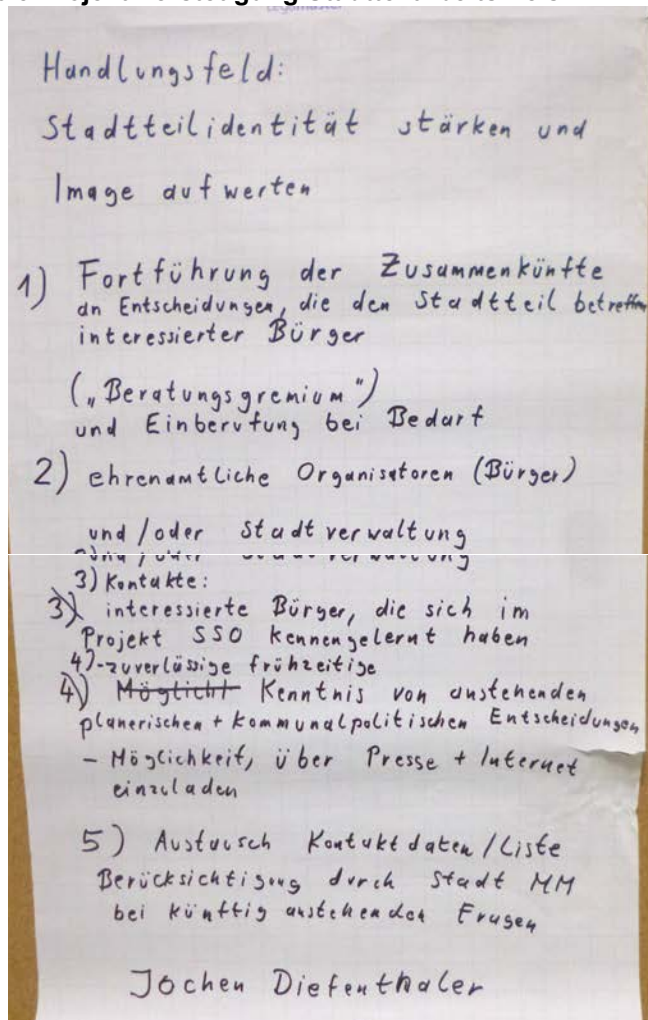 Handlungsfeld:
Stadtteilidentität stärken und
Image aufwerten
1) Fortführung der Zusammenkünfte
an Entscheidungen, die den Stadtteil betreffen
interessierter Bürger
("Beratungsgremium")
und Einberufung bei Bedarf
2) ehrenamtliche Organisatoren (Bürger)
und/oder Stadtverwaltung
3) Kontakte:
3) interessierte Bürger, die sich im
Projekt SSO kennengelernt haben
4) - zuverlässige frühzeitige
4) Möglichk Kenntnis von anstehenden
planerischen + kommunalpolitischen Entscheidungen
- Möglichkeit, über Presse + Internet
einzuladen
5) Austausch Kontaktdaten/Liste
Berücksichtigung durch Stadt MM
bei künftig anstehenden Fragen
Jochen Diefenthaler